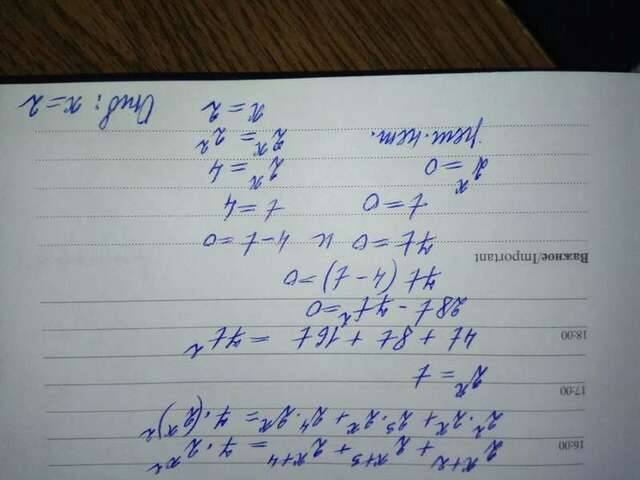 16:00
2^{x+2} + 2^{x+3} + 2^{x+4} = 7 · 2^{x^2}
2^2 · 2^x + 2^3 · 2^x + 2^4 · 2^x = 7 · (2^x)^2
17:00
2^x = t
18:00
4t + 8t + 16t = 7t^2
28t - 7t^2 = 0
7t (4 - t) = 0
Важное/Important
7t = 0 и 4 - t = 0
t = 0 t = 4
2^x = 0 2^x = 4
реш. нет. 2^x = 2^2
x = 2
Отв: x = 2